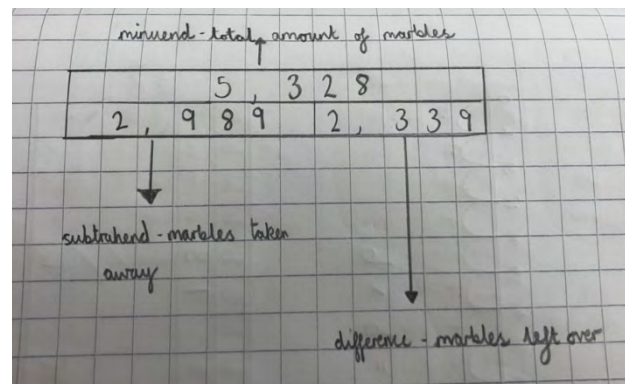 minuend - total amount of marbles
5,328
2,989 2,339
subtrahend - marbles taken
away
difference - marbles left over